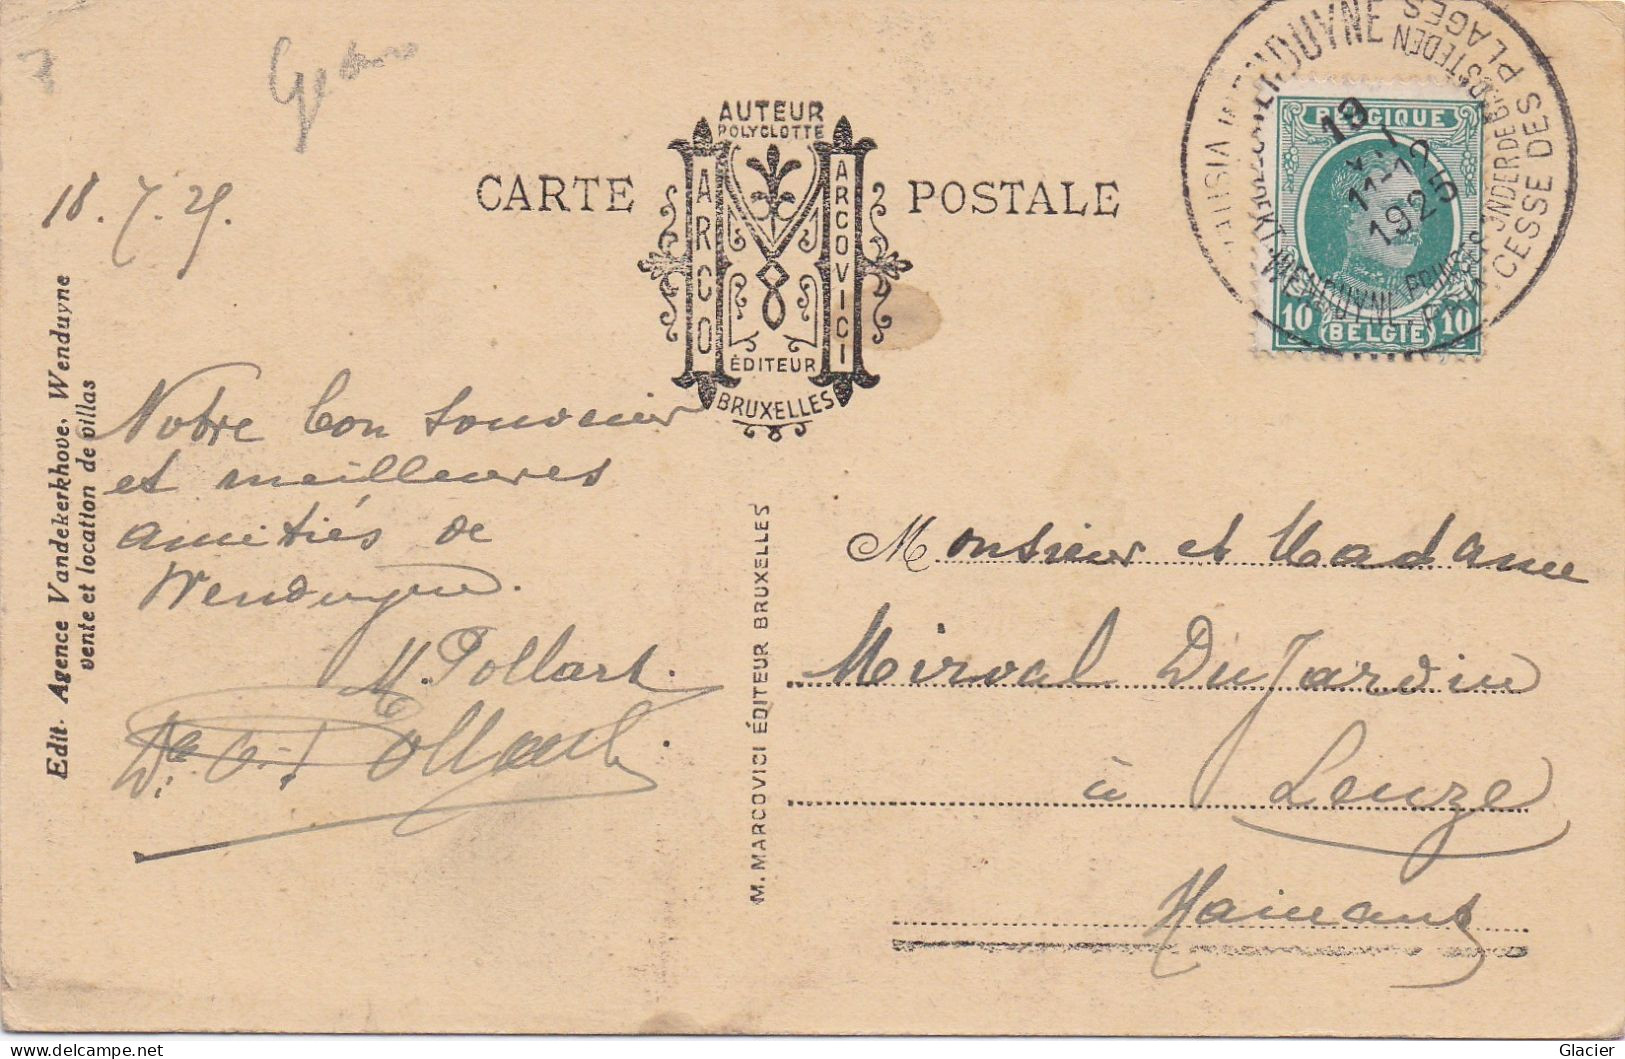 AUTEUR
POLYGLOTTE
CARTE POSTALE
MARCO
MARCOVICI
ÉDITEUR
BRUXELLES
WENDUYNE
PLAGES
BELGIQUE
19
11-12
1925
10 BELGIË 10
18.7.25.
Notre bon souvenir
et meilleures
amitiés de
Wenduyne.
M. Pollart.
Pollart.
Edit. Agence Vandekerkhove, Wenduyne
vente et location de villas
M. MARCOVICI ÉDITEUR BRUXELLES
Monsieur et Madame
Mirval DuJardin
à Leuze
Hainaut
Glacier